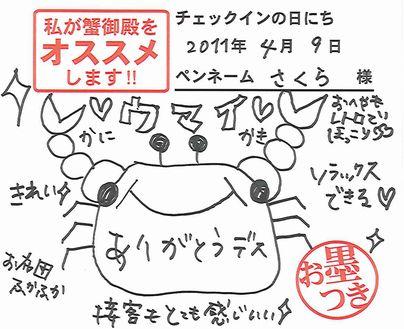 私が蟹御殿を
オススメ
します!!
チェックインの日にち
2011年 4月 9日
ペンネーム さくら 様
♡ウマイ♡
かに
かき
おへやも
レトロでい
ほっこり
きれい
リラックス
できる♡
ありがとうデス
お布団
ふかふか
接客もとても感じいい
お墨
つき